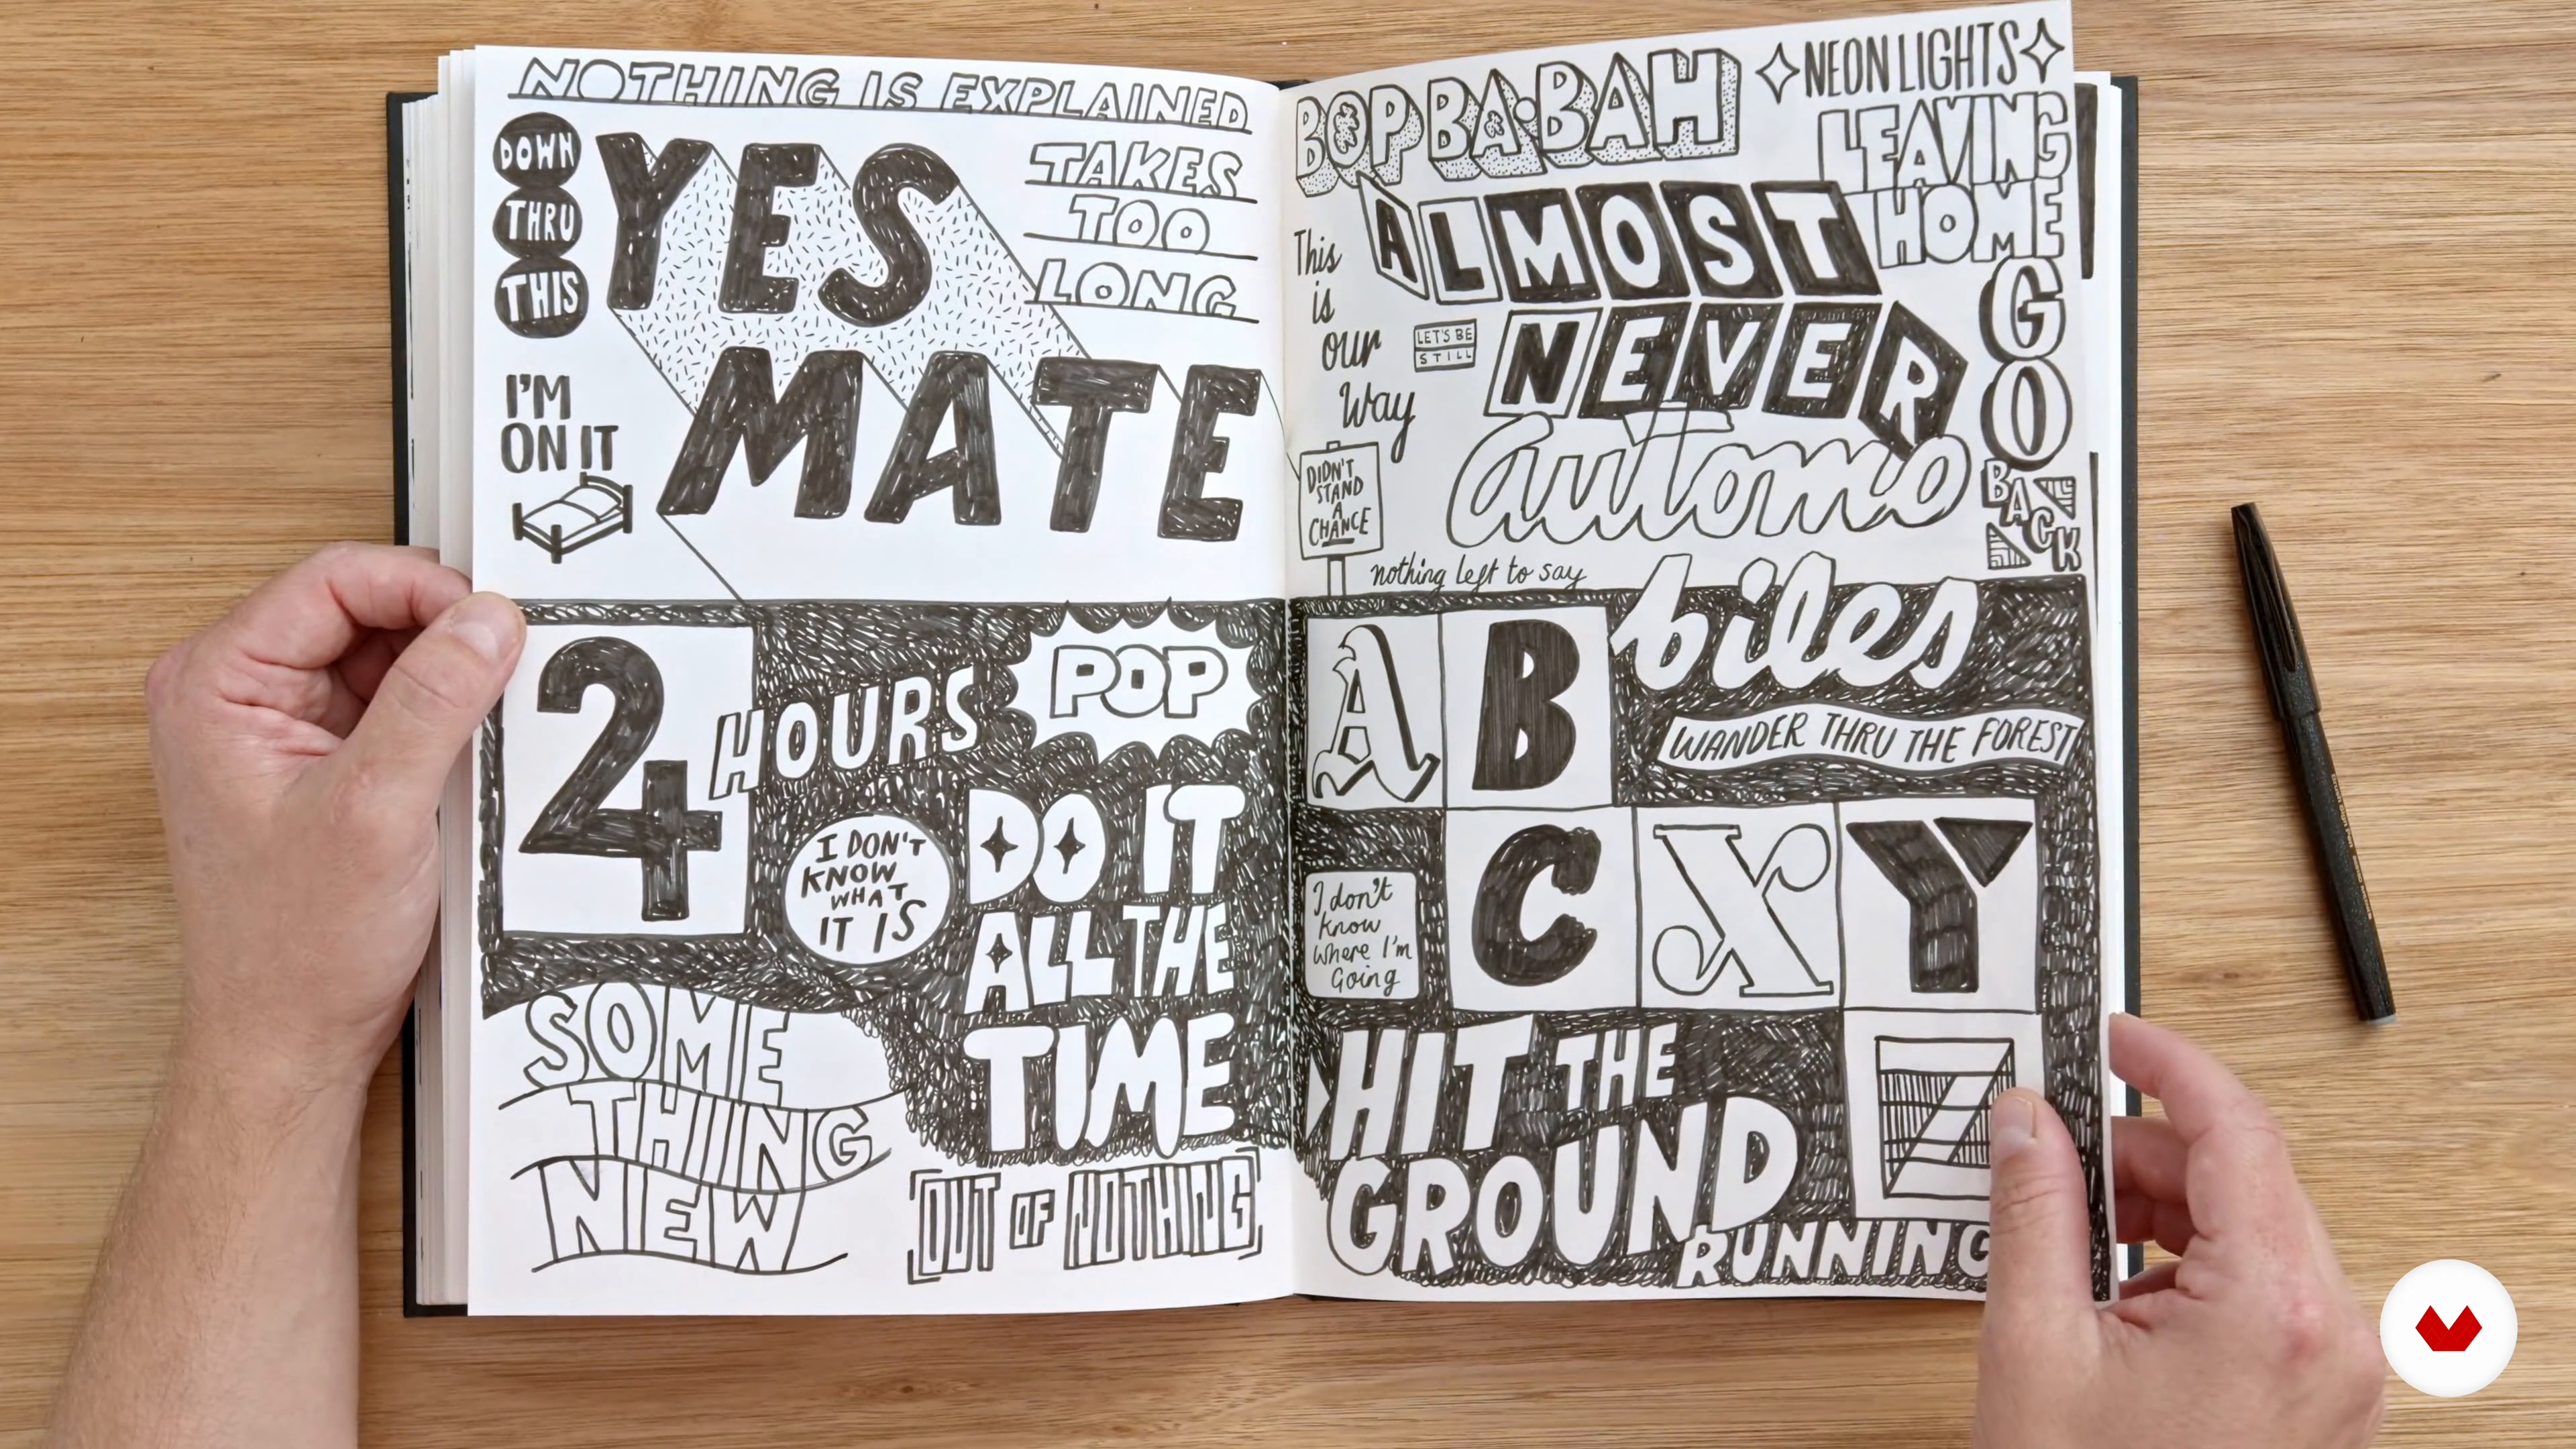 NOTHING IS EXPLAINED
DOWN
THRU
THIS
YES
MATE
TAKES
TOO
LONG
I'M
ON IT
24
HOURS
POP
I DON'T
KNOW
WHAT
IT IS
DO IT
ALL THE
TIME
SOME
THING
NEW
OUT OF NOTHING
BOP BA·BAH
NEON LIGHTS
LEAVING
HOME
This
is
our
Way
ALMOST
NEVER
LET'S BE
STILL
GO
BACK
automo
biles
DIDN'T
STAND
A
CHANCE
nothing left to say
A B
WANDER THRU THE FOREST
C X Y
Z
I don't
know
where I'm
Going
HIT THE
GROUND
RUNNING